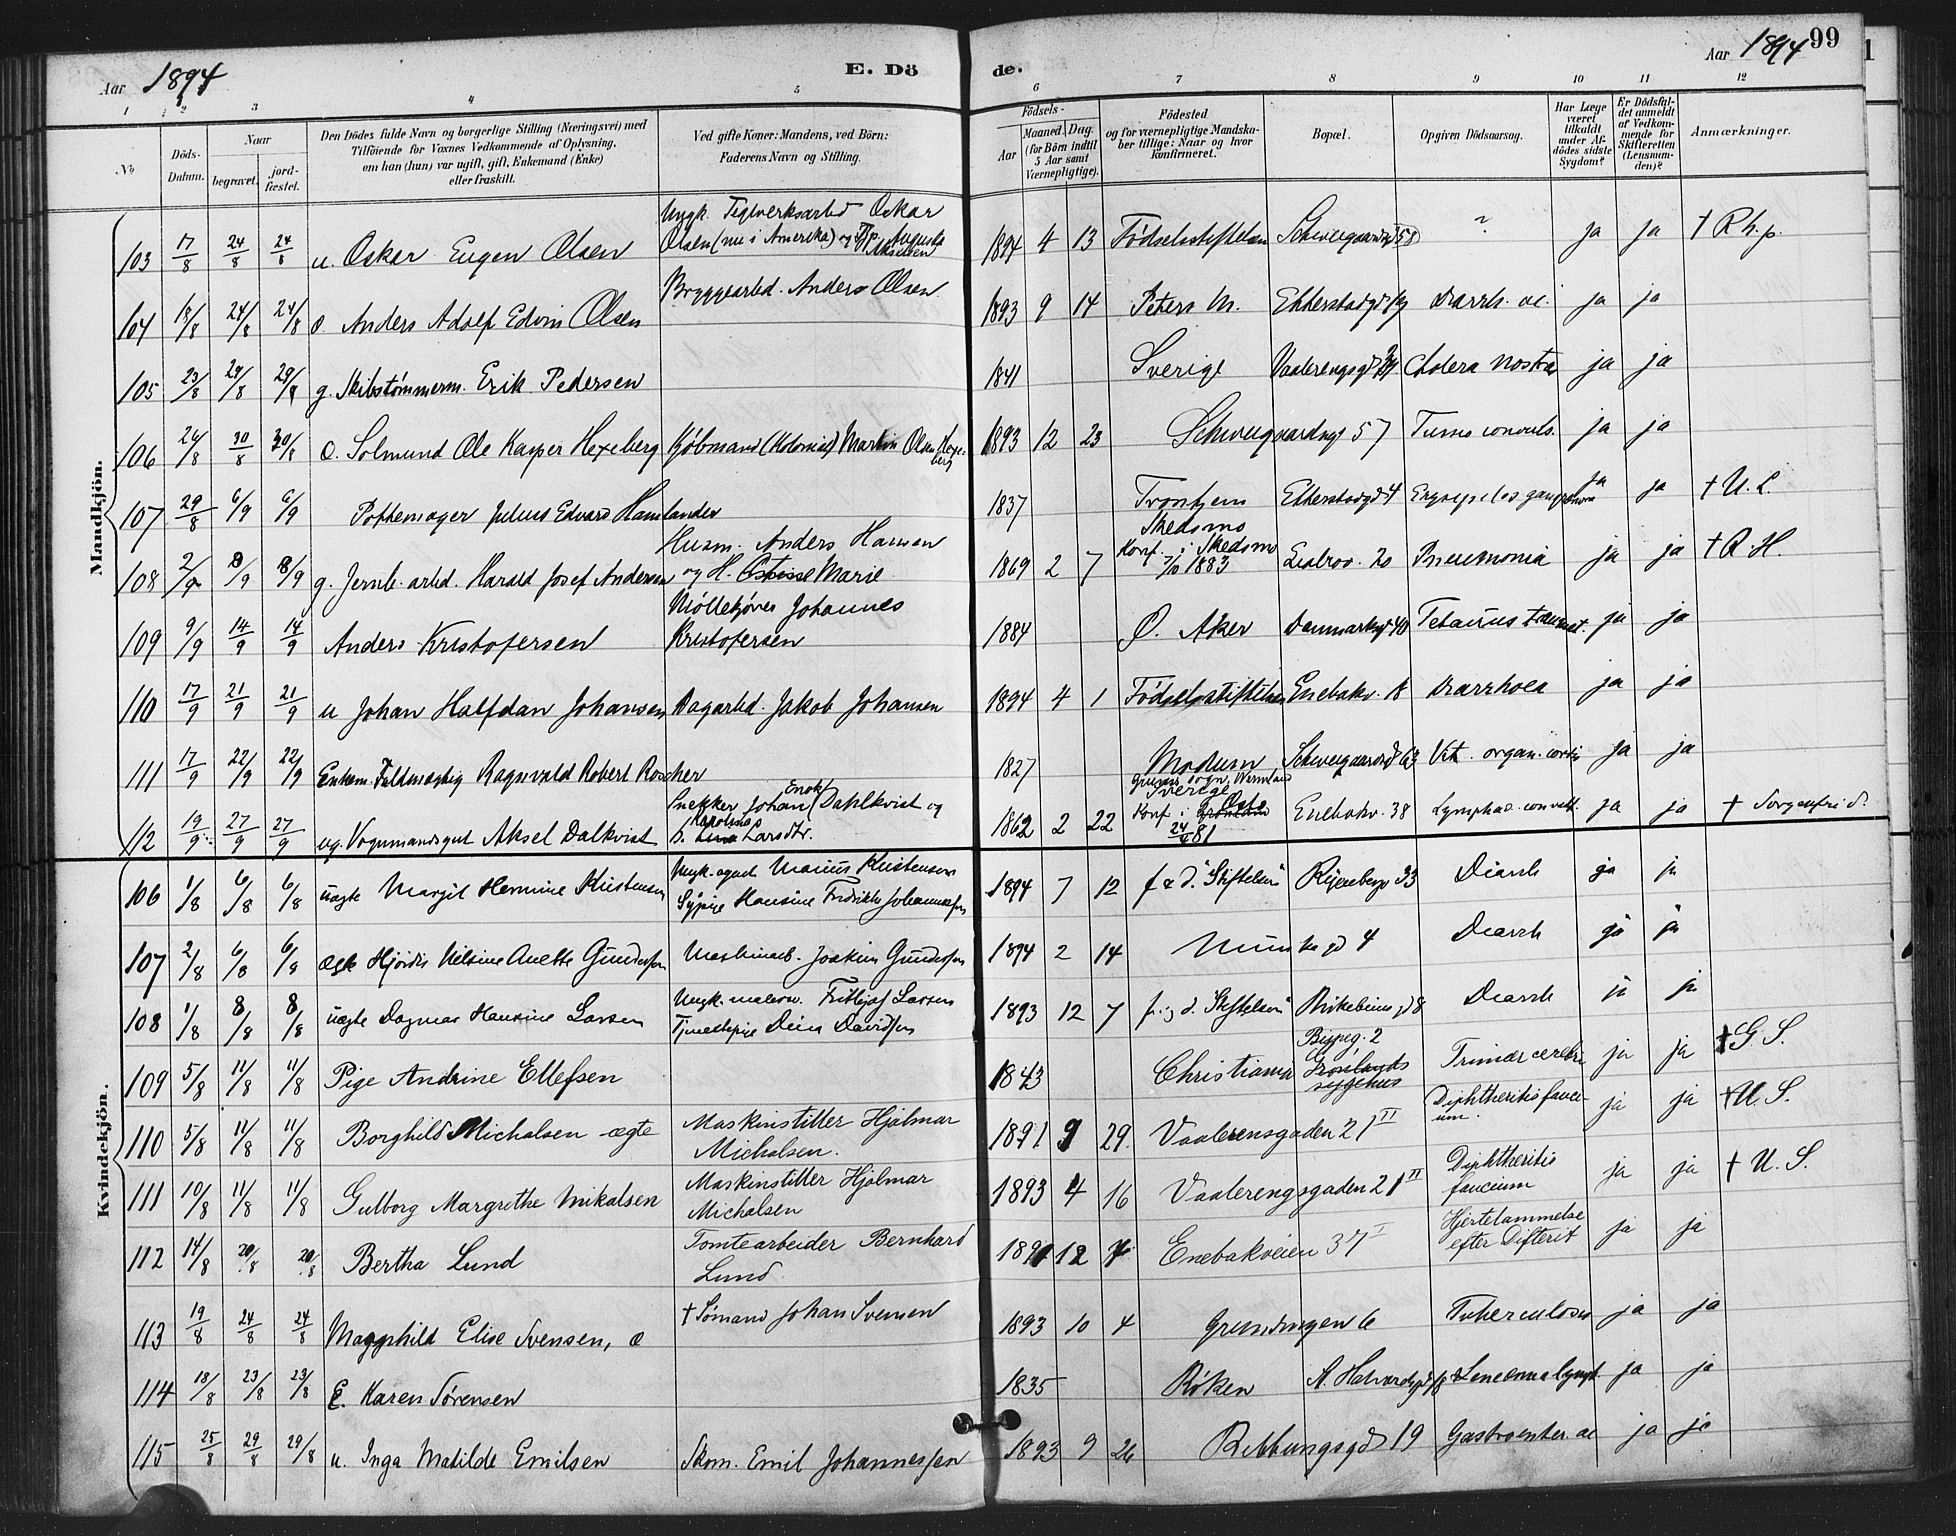 Aar 1894
E. Dö
de.
Aar 1894
99
1 2 3 4 5 6 7 8 9 10 11 12
No
Döds-Datum.
Naar
begravet.
jord-fæstet.
Den Dödes fulde Navn og borgerlige Stilling (Næringsvei) med Tilföiende for Voxnes Vedkommende af Oplysning, om han (hun) var ugift, gift, Enkemand (Enke) eller fraskilt.
Ved gifte Koner: Mandens, ved Börn: Faderens Navn og Stilling.
Födsels-
Aar
Maaned. Dag. (for Börn indtil 5 Aar samt Værnepligtige).
Födested og for værnepligtige Mandskaber tillige: Naar og hvor konfirmeret.
Bopæl.
Opgiven Dödsaarsag.
Har Læge været tilkaldt under Afdödes sidste Sygdom?
Er Dödsfaldet anmeldt af Vedkommende for Skifteretten (Lensmanden)?
Anmærkninger.
Mandkjön.
103 17/8 24/8 24/8 u. Oskar Eugen Olsen Ungk. Teglverksarbd Oskar Olsen (nu i Amerika) og Augusta 1894 4 13 Födselsstiftelsen 58 ? ja ja † R. h. p.
104 18/8 24/8 24/8 Anders Adolf Edvin Olsen Bryggearbd. Anders Olsen 1893 9 14 Peters M. ja ja
105 23/8 29/8 29/8 g. Skibstømmerm. Erik Pedersen 1841 Sverige Cholera nostra ja ja
106 24/8 30/8 30/8 Solmund Ole Kasper Hexeberg Kjöbmand (Kolonial) Martin Olsen Hexeberg 1893 12 23 Schweigaardsgt 57 ja ja
107 29/8 6/9 6/9 Pottemager Julius Edvard Hamlander 1837 Trontjem 4 ja ja † U. L.
108 2/9 8/9 8/9 g. Jernb. arbd. Harald Josef Andersen Husm. Anders Hansen og H. Marie 1869 2 7 Skedsmo Konf. i Skedsmo 1883 20 Pneumonia ja ja † R. H.
109 9/9 14/9 14/9 Anders Kristofersen Møllekjører Johannes Kristofersen 1884 Ø. Aker Danmarksgt 40 Tetanus ja ja
110 17/9 21/9 21/9 u Johan Halfdan Johansen Dagarbd. Jakob Johansen 1894 4 1 Födselsstiftelsen Enebakv. Diarrhoea ja ja
111 17/9 22/9 22/9 Enkem. Fuldmægtig Ragnvald Robert Roscher 1827 Modum 63 Vit. organ. cordis ja ja
112 19/9 27/9 27/9 ug. Vognmandsgut Aksel Dalkvist Snekker Johan Enok Dahlkvist og h. Karolina Larsdtr. 1862 2 22 Sverige Konf. i 81 Enebakv. 38 ja ja † Sorgenfri
Kvindekjön.
106 1/8 6/8 6/8 uægte Margit Hermine Kristensen Ungk. agent Marius Kristensen Sypige Hansine Fredrikke Johannessen 1894 7 12 f & d. Stiftelsen 33 Diarrh ja ja
107 2/8 6/8 6/8 ægte Hjördis Nilsine Anette Gundersen Maskinarb. Joakim Gundersen 1894 2 14 Munkegd 4 Diarrh ja ja
108 1/8 8/8 8/8 uægte Dagmar Hansine Larsen Ungk. malersv. Fritjof Larsen Tjenestepige Davidsen 1893 12 7 f. & d. Stiftelsen 8 Diarrh ja ja
109 5/8 11/8 11/8 Pige Andrine Ellefsen 1843 Christiania Bispeg. 2 Grönlands sygehus ja ja † G. S.
110 5/8 11/8 11/8 Borghild Michalsen ægte Maskinstiller Hjalmar Michalsen. 1891 9 29 Vaalerensgaden 21 II Diphtheritis faucium. ja ja † U. S.
111 10/8 11/8 11/8 Gulborg Margrethe Mikalsen Maskinstiller Hjalmar Michalsen 1893 4 16 Vaalerengsgaden 21 II Diphtheritis faucium ja ja † U. S.
112 14/8 20/8 20/8 Bertha Lund Tomtearbeider Bernhard Lund. 1891 12 Enebakveien 37 I Hjertelammelse efter Difterit ja ja
113 19/8 24/8 24/8 Magnhild Elise Svensen, æ † Sømand Johan Svensen 1893 10 4 6 Tuberculosis ja ja
114 18/8 23/8 23/8 E. Karen Sörensen 1835 Röken ja ja
115 25/8 29/8 29/8 u. Inga Matilde Emilsen Skom. Emil Johannessen 1893 9 26 19 Gastroenter. ac ja ja